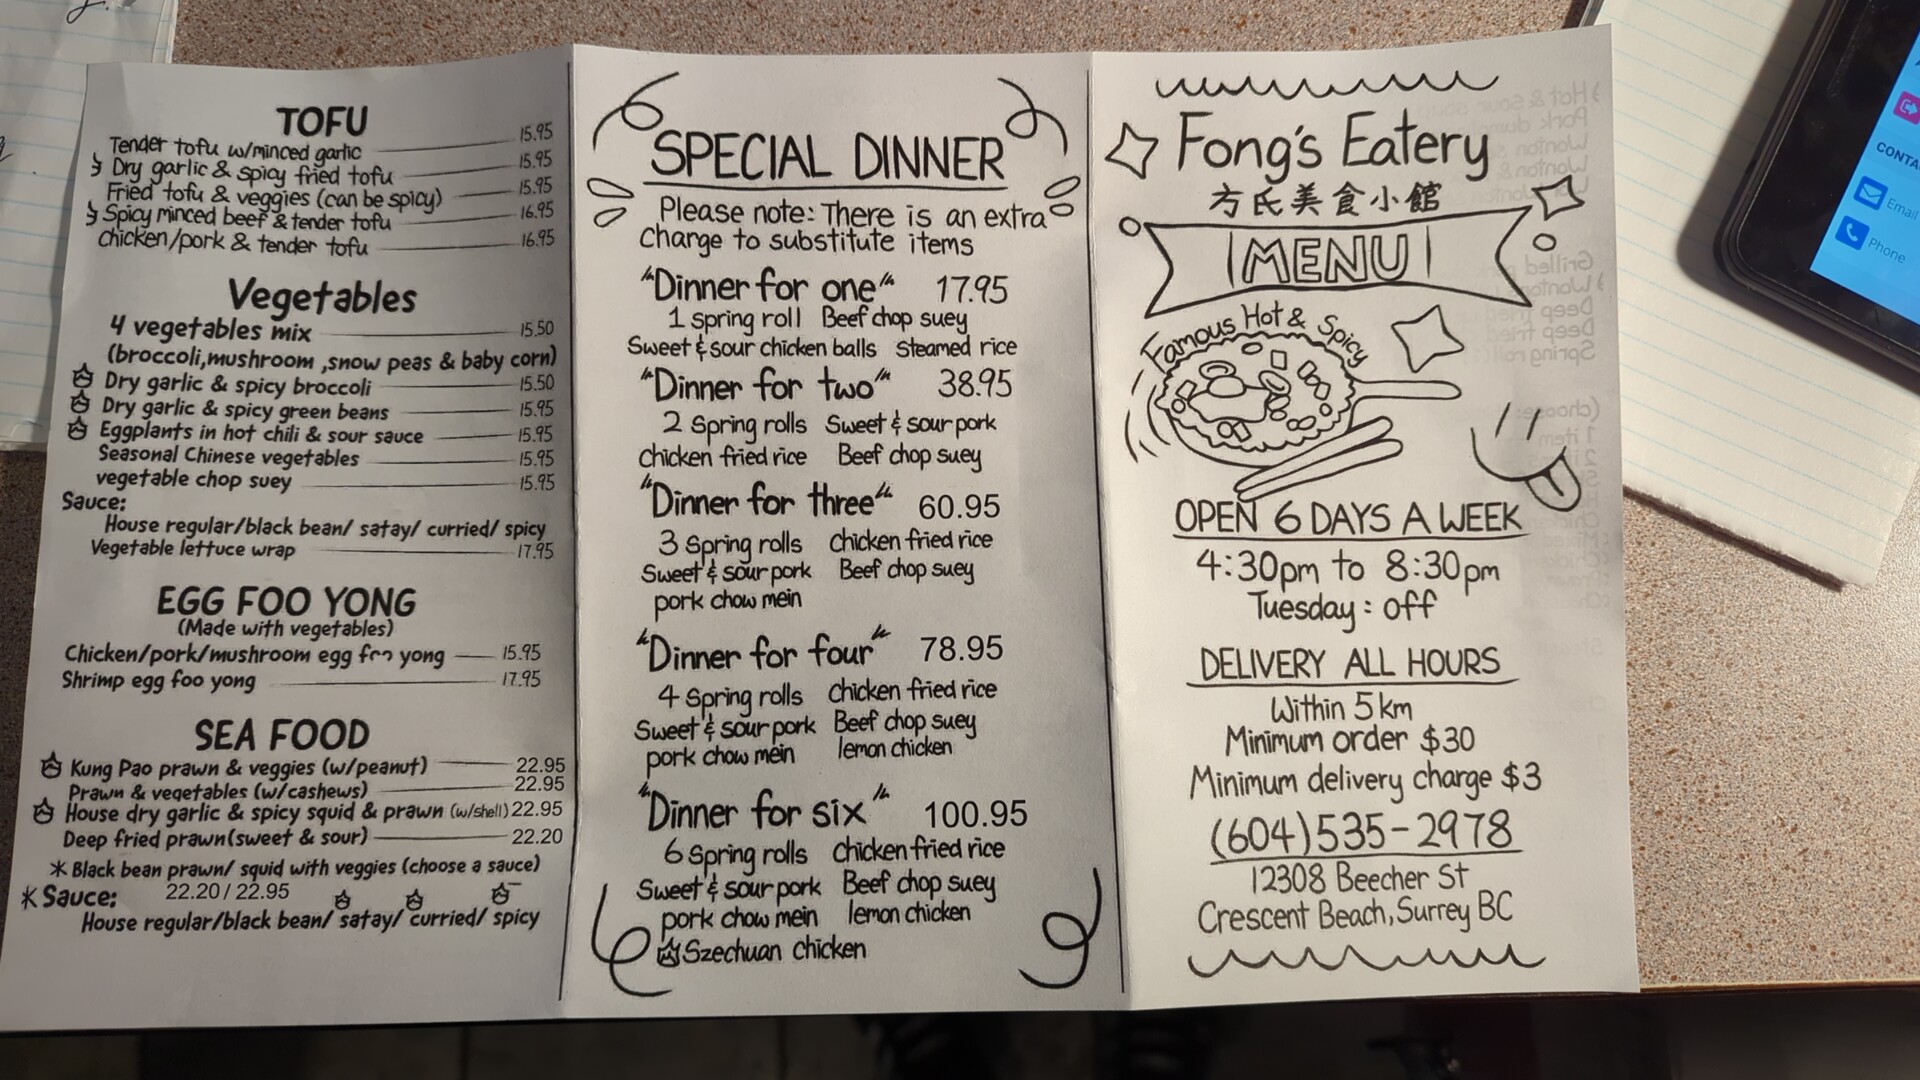 TOFU
Tender tofu w/minced garlic 15.95
Dry garlic & spicy fried tofu 15.95
Fried tofu & veggies (can be spicy) 15.95
Spicy minced beef & tender tofu 16.95
chicken/pork & tender tofu 16.95
Vegetables
4 vegetables mix 15.50
(broccoli,mushroom ,snow peas & baby corn)
Dry garlic & spicy broccoli 15.50
Dry garlic & spicy green beans 15.95
Eggplants in hot chili & sour sauce 15.95
Seasonal Chinese vegetables 15.95
vegetable chop suey 15.95
Sauce:
House regular/black bean/ satay/ curried/ spicy
Vegetable lettuce wrap 17.95
EGG FOO YONG
(Made with vegetables)
Chicken/pork/mushroom egg foo yong 15.95
Shrimp egg foo yong 17.95
SEA FOOD
Kung Pao prawn & veggies (w/peanut) 22.95
Prawn & vegetables (w/cashews) 22.95
House dry garlic & spicy squid & prawn (w/shell) 22.95
Deep fried prawn(sweet & sour) 22.20
*Black bean prawn/ squid with veggies (choose a sauce)
*Sauce: 22.20 / 22.95
House regular/black bean/ satay/ curried/ spicy
SPECIAL DINNER
Please note: There is an extra
charge to substitute items
"Dinner for one" 17.95
1 spring roll Beef chop suey
Sweet & sour chicken balls steamed rice
"Dinner for two" 38.95
2 Spring rolls Sweet & sour pork
chicken fried rice Beef chop suey
"Dinner for three" 60.95
3 Spring rolls chicken fried rice
Sweet & sour pork Beef chop suey
pork chow mein
"Dinner for four" 78.95
4 Spring rolls chicken fried rice
Sweet & sour pork Beef chop suey
pork chow mein lemon chicken
"Dinner for six" 100.95
6 Spring rolls chicken fried rice
Sweet & sour pork Beef chop suey
pork chow mein lemon chicken
Szechuan chicken
Fong's Eatery
方氏美食小館
MENU
Famous Hot & Spicy
OPEN 6 DAYS A WEEK
4:30pm to 8:30pm
Tuesday : off
DELIVERY ALL HOURS
Within 5 km
Minimum order $30
Minimum delivery charge $3
(604)535-2978
12308 Beecher St
Crescent Beach, Surrey BC
Email
Phone